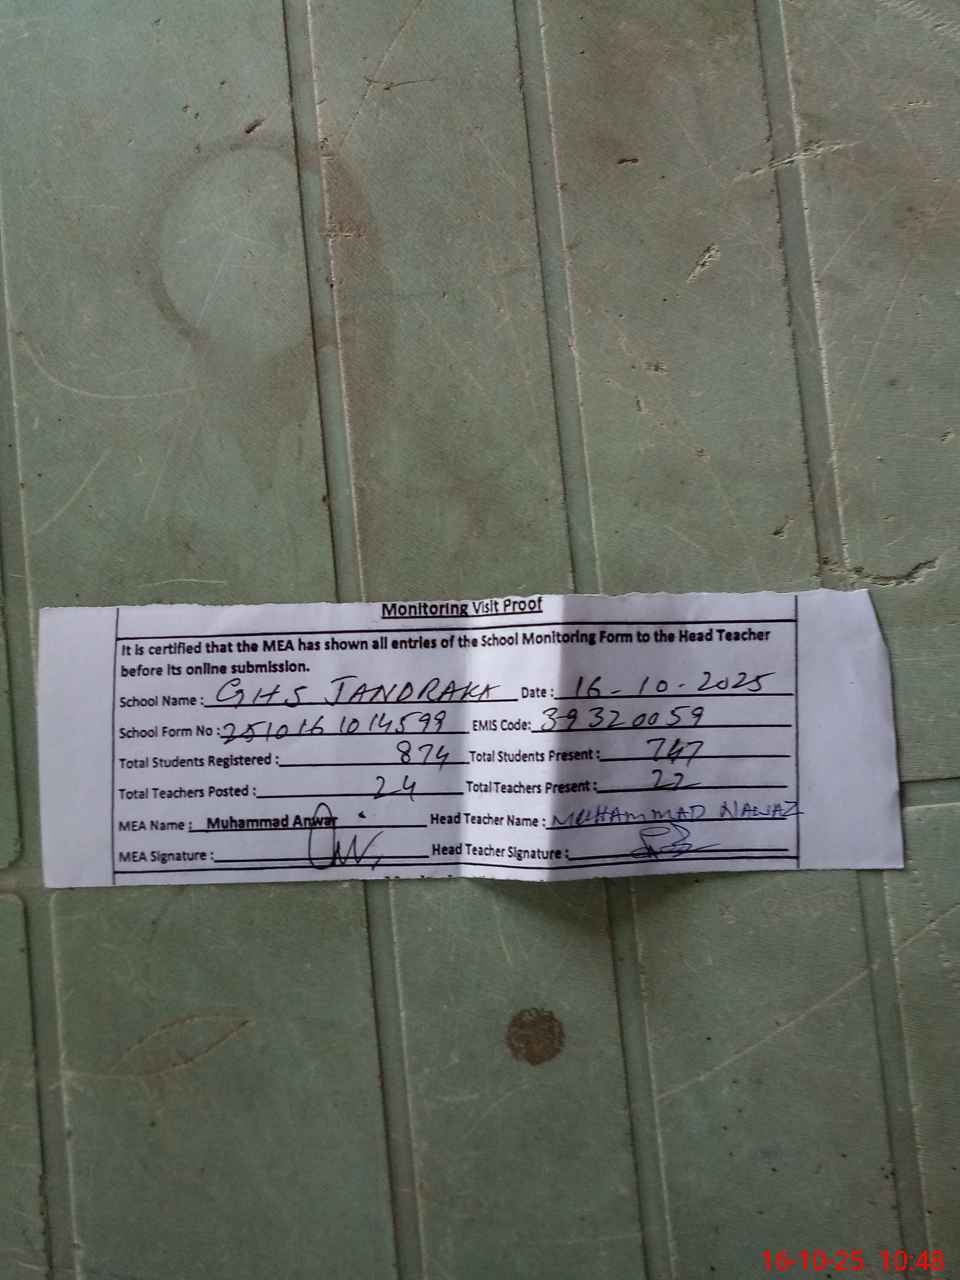 Monitoring Visit Proof
It is certified that the MEA has shown all entries of the School Monitoring Form to the Head Teacher
before its online submission.
School Name : GHS JANDRAKA Date : 16-10-2025
School Form No : 2510161014599 EMIS Code: 39320059
Total Students Registered : 874 Total Students Present : 747
Total Teachers Posted : 24 Total Teachers Present : 22
MEA Name : Muhammad Anwar Head Teacher Name : MUHAMMAD NAWAZ
MEA Signature : Head Teacher Signature :
16-10-25 10:48